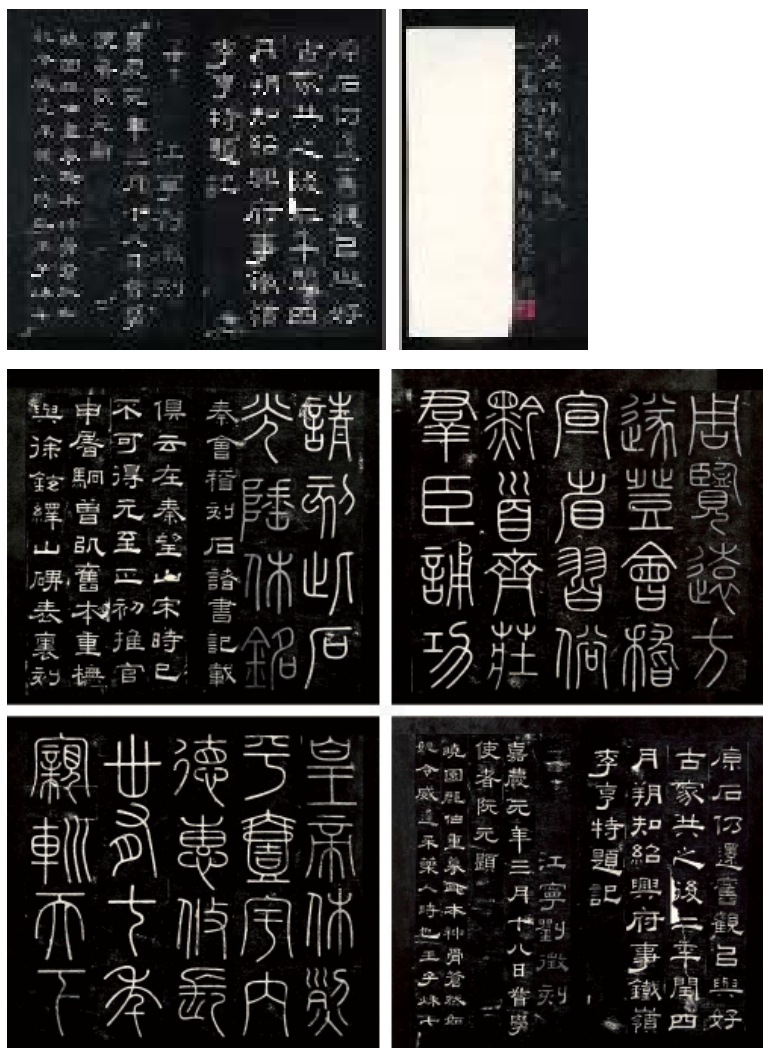 原石仍還舊觀㠯與好
古家共之後二年閏四
月朔知紹興府事鐵嶺
李亨特題記
江寧劉徵刻
嘉慶元年三月十八日督學
使者阮元
請刻此石
光陲休銘
秦會稽刻石諸書記載
俱云在秦望山宋時已
不可得元至正初推官
申屠駉曾㠯舊本重橅
與徐鉉繹山碑表裏刻
周覽遠方
遂登會稽
宣省習俗
黔首齊莊
羣臣誦功
皇帝休烈
平壹宇內
德惠攸長
卅有七年
親軔天下
原石仍還舊觀㠯與好
古家共之後二年閏四
月朔知紹興府事鐵嶺
李亨特題記
江寧劉徵刻
嘉慶元年三月十八日督學
使者阮元